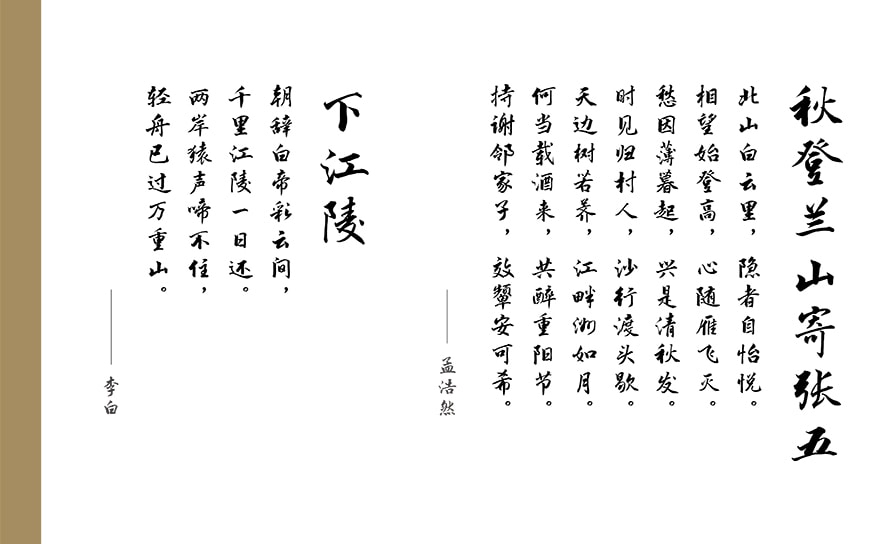 秋登兰山寄张五
北山白云里，隐者自怡悦。
相望始登高，心随雁飞灭。
愁因薄暮起，兴是清秋发。
时见归村人，沙行渡头歇。
天边树若荠，江畔洲如月。
何当载酒来，共醉重阳节。
持谢邻家子，效颦安可希。
孟浩然
下江陵
朝辞白帝彩云间，
千里江陵一日还。
两岸猿声啼不住，
轻舟已过万重山。
李白